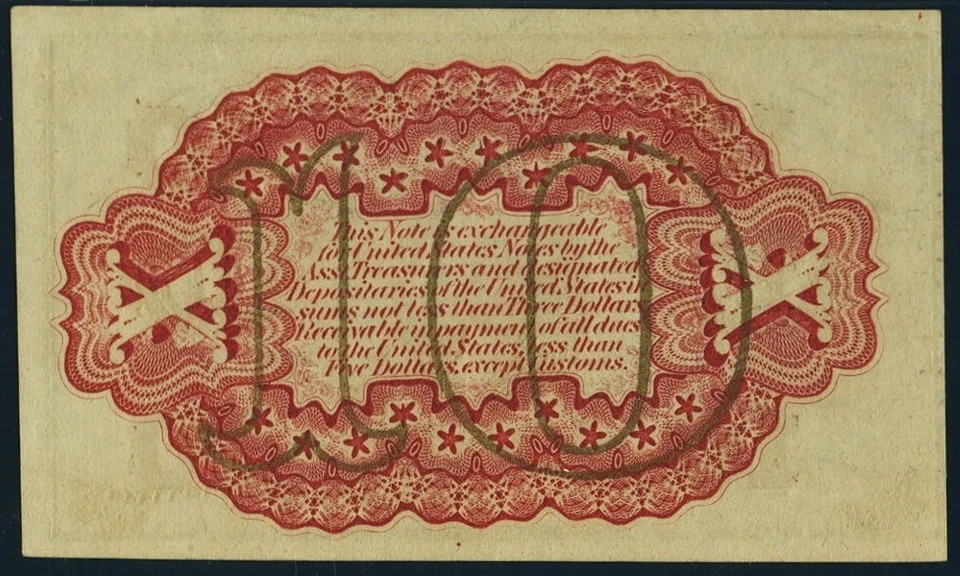 This Note is exchangeable
for United States Notes by the
Asst Treasurers and designated
Depositaries of the United States in
sums not less than Three Dollars.
Receivable in payment of all dues
to the United States, less than
Five Dollars, except customs.
10
X X